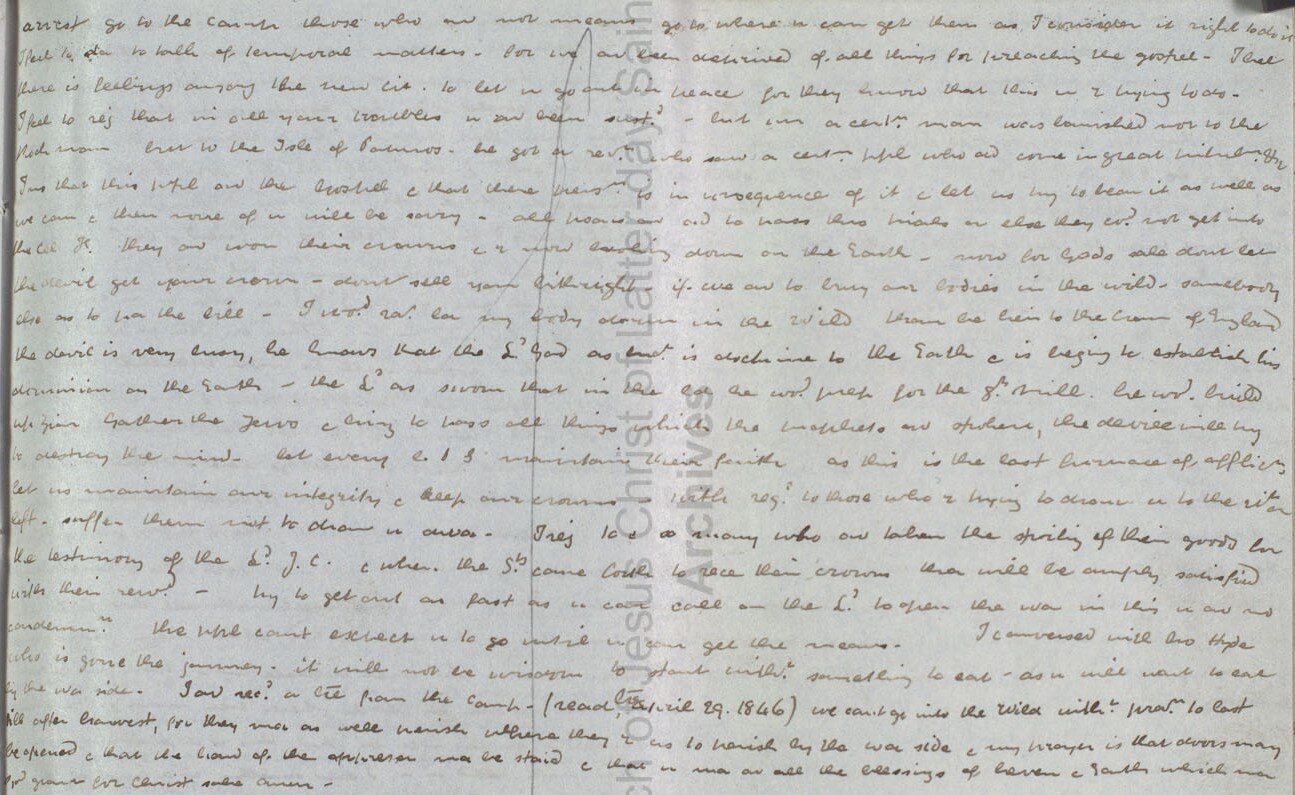 arrest go to the camp those who av not means go to where u can get them as I consider it right to do it
I feel to da to talk of temporal matters - for we av been deprived of all things for preaching the gospel - I feel
there is feelings among the new cit. to let u go out in peace for they know that this u r trying to do -
I feel to rej that in all your troubles u av been sustd - but a certn man was banished not to the
but to the Isle of Patmos - he got a revn who saw a certn ppl who ad come in great tribuln
that this ppl av the Gospel & that there persn is in consequence of it & let us try to bear it as well as
we can & then none of u will be sorry - all ad to pass thro trials or else they cod not get into
the Cel K. they av won their crowns & r now looking down on the Earth - now for Gods sake dont let
the devil get your crown - dont sell your bithright if we av to bury our bodies in the wild - somebody
else as to pa the bill - I wod rar la my body down in the wild than be heir to the Crown of England
the devil is very busy, he knows that the Ld God as is doctrine to the Earth & is beging to establish his
dominion on the Earth - the Ld as sworn that in the he wod prep for the gt mill. he wod build
up Zion Gather the Jews & bring to pass all things which the prophets av spoken, the devil will try
to destroy the mind - let every L D S maintain their faith as this is the last furnace of afflictn
let us maintain our integrity & keep our crowns with regd to those who r trying to draw u to the rit or
left - suffer them not to draw u awa - I rej to c so many who av taken the spoiling of their goods for
the testimony of the Ld J. C. & when the Sts come forth to rece their crowns tha will be amply satisfied
with their rewd - try to get out as fast as u can call on the Ld to open the wa in this u av no
condemnn the ppl cant expect u to go until u can get the means - I conversed with bro Hyde
who is gone the journey - it will not be wisdom to start witht something to eat - as u will want to eat
by the wa side - I av recd a lre from the Camp - (read lre April 29. 1846) we cant go into the wild witht provns to last
till after harvest, for they ma as well perish where they r as to perish by the wa side & my prayer is that doors may
be opened & that the hand of the oppressor ma be staid & that u ma av all the blessings of heven & Earth which ma
God grant for Christ sake amen -
Church of Jesus Christ of Latter-day Saints
Archives